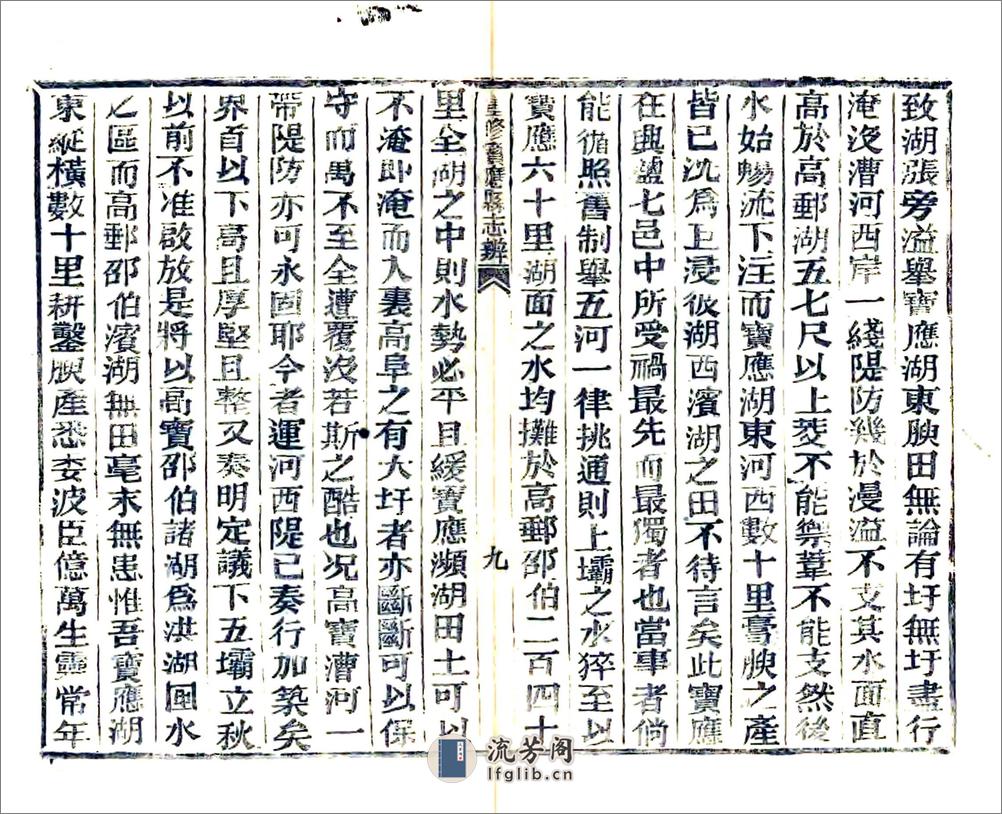 致湖漲旁溢舉寶應湖東腴田無論有圩無圩盡行
淹沒漕河西岸一綫隄防幾於漫溢不支其水面直
高於高郵湖五七尺以上茭不能禦葦不能支然後
水始暢流下注而寶應湖東河西數十里膏腴之產
皆已沈爲巨浸彼湖西濱湖之田不待言矣此寶應
在興鹽七邑中所受禍最先而最獨者也當事者倘
能循照舊制舉五河一律挑通則上壩之水猝至以
重修寶應縣志辨
九
寶應六十里湖面之水均攤於高郵邵伯二百四十
里全湖之中則水勢必平且緩寶應瀕湖田土可以
不淹即淹而入裏高阜之有大圩者亦斷斷可以保
守而萬不至全遭覆沒若斯之酷也况高寶漕河一
帶隄防亦可永固耶今者運河西隄已奏行加築矣
界首以下高且厚堅且整又奏明定議下五壩立秋
以前不准啟放是將以高寶邵伯諸湖爲洪湖匣水
之區而高郵邵伯濱湖無田毫末無患惟吾寶應湖
東縱橫數十里耕鑿腴產悉委波臣億萬生靈常年
流芳阁
lfglib.cn